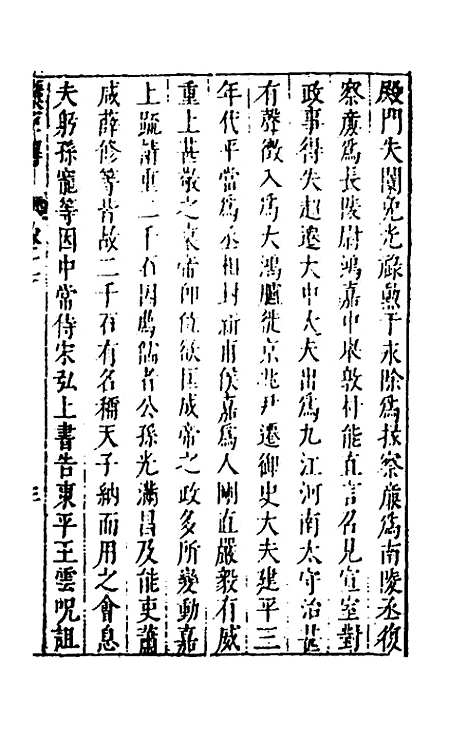 殿門失闌免光祿勲于永除爲掾察廉爲南陵丞復
察廉爲長陵尉鴻嘉中舉敦朴能直言名見宣室對
政事得失超遷大中大夫出爲九江河南太守治甚
有聲徴入爲大鴻臚徙京兆尹遷御史大夫建平三
年代平當爲丞相封新甫侯嘉爲人剛直嚴毅有威
重上甚敬之哀帝卽位欲匡成帝之政多所變動嘉
上疏請重二千石因薦儒者公孫光滿昌及能吏蕭
咸薛修等皆故二千石有名稱天子納而用之會息
夫躬孫寵等因中常侍宋弘上書告東平王雲呪詛
三